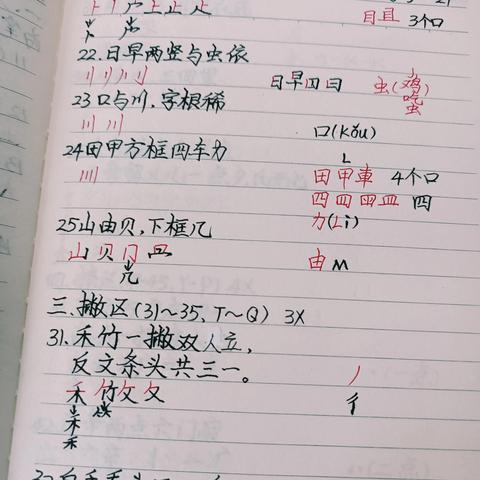 目且 3个口
22.日早两竖与虫依
日早四曰 虫(鸡吃虫
23口与川,字根稀
川 川 口(Kǒu)
24田甲方框四车力
川 田甲車 4个口
四四皿 四
力(Li)
25山由贝,下框几
山贝冂皿 由M
几
三.撇区(31~35、T~Q) 3X
31.禾竹一撇双人立,
反文条头共三一。
禾竹攵夂 彳
禾
禾